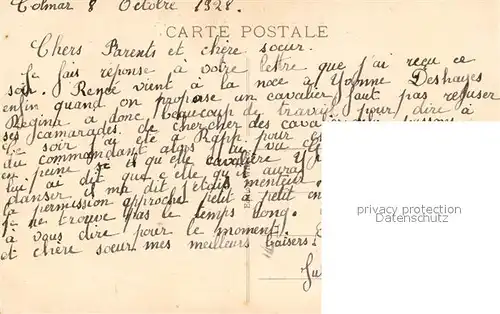 Colmar 8 Octobre 1928.
CARTE POSTALE
Chers Parents et chère soeur.
Je fais réponse à votre lettre que j'ai reçu ce
soir. Renée vient à la noce à Yvonne Deshayes
enfin quand on propose un cavalier faut pas refuser
Regina a donc beaucoup de travail pour dire à
ses camarades de chercher des
Ce soir j'ai été à Rapp. pour
du commandant alors j'ai vu
en peine se il qu'elle cavalière
lui ai dit que c'elle qu'il aura
danser il m'a dit j'étais menteur
la permission approche petit à petit
je ne trouve pas le temps long.
à vous dire pour le moment.
et chère soeur mes meilleurs baisers
privacy protection
Datenschutz